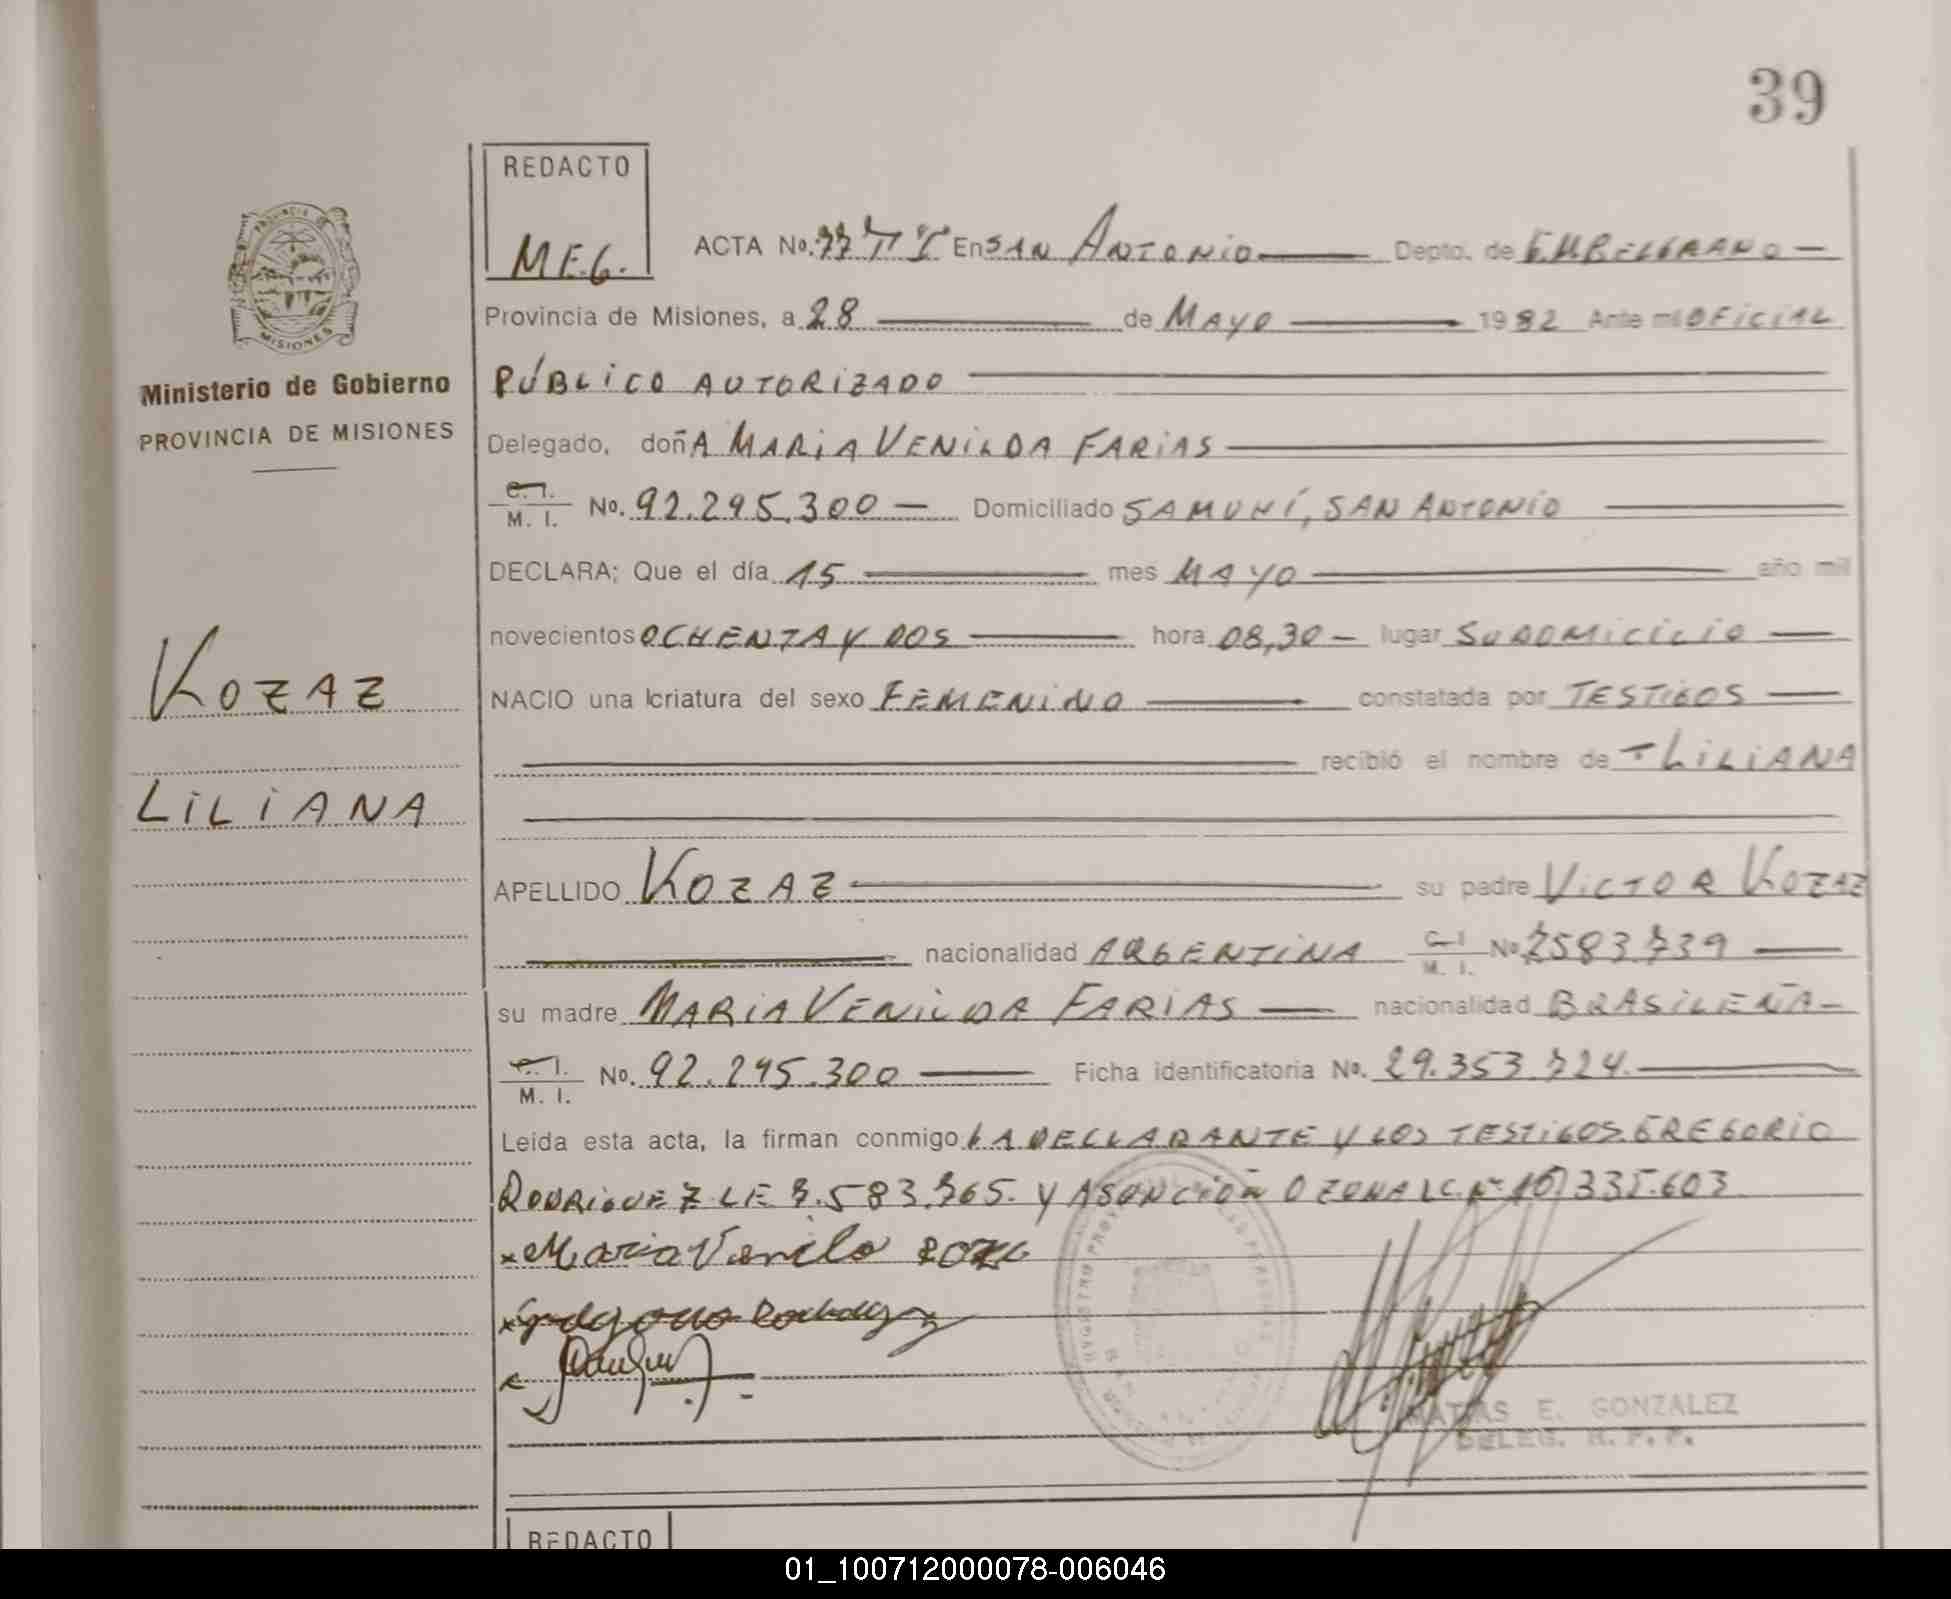 39
REDACTO
M.E.G.
ACTA No. 77 T I En SAN ANTONIO Depto. de G.M.BELGRANO
Provincia de Misiones, a 28 de MAYO 1982 Ante mi OFICIAL
PÚBLICO AUTORIZADO
Ministerio de Gobierno
PROVINCIA DE MISIONES
Delegado, doñA MARIA VENILDA FARIAS
C. I.
M. I. No. 92.295.300 Domiciliado SAMUHÍ, SAN ANTONIO
DECLARA; Que el día 15 mes MAYO año mil
novecientos OCHENTA Y DOS hora 08,30 lugar SU DOMICILIO
KOZAZ
NACIO una criatura del sexo FEMENINO constatada por TESTIGOS
recibió el nombre de LILIANA
LILIANA
APELLIDO KOZAZ su padre VICTOR KOZAZ
nacionalidad ARGENTINA C. I. M. I. No. 7583.739
su madre MARIA VENILDA FARIAS nacionalidad BRASILEÑA
C. I.
M. I. No. 92.295.300 Ficha identificatoria No. 29.353.724.
Leída esta acta, la firman conmigo LA DECLARANTE Y LOS TESTIGOS. GREGORIO
RODRIGUEZ LE 7.583.765. Y ASUNCIÓN OZUNA LC. Nº 10/335.603
x Maria Venilda
MATIAS E. GONZALEZ
DELEG. R. P. P.
REDACTO
PROVINCIA DE
MISIONES
01_100712000078-006046